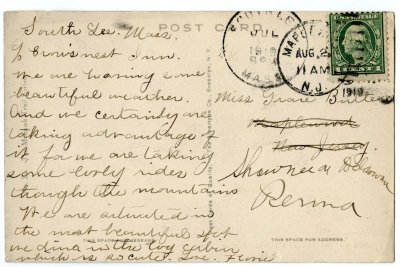 South Lee, Mass.
POST CARD
Crow's nest Inn.
We are having some
beautiful weather.
And we certainly are
taking advantage of
it for we are taking
some lovely rides
though the mountains
We are situated in
the most beautiful spot
we dine in the log cabin
which is so cute. Love.
THIS SPACE FOR MESSAGE.
SOUTH LEE
JUL
MASS.
MAPLE
AUG
11 AM
N.J.
1919
Miss Grace Butler
Maplewood
New Jersey
Shawnee
Penna
THIS SPACE FOR ADDRESS.